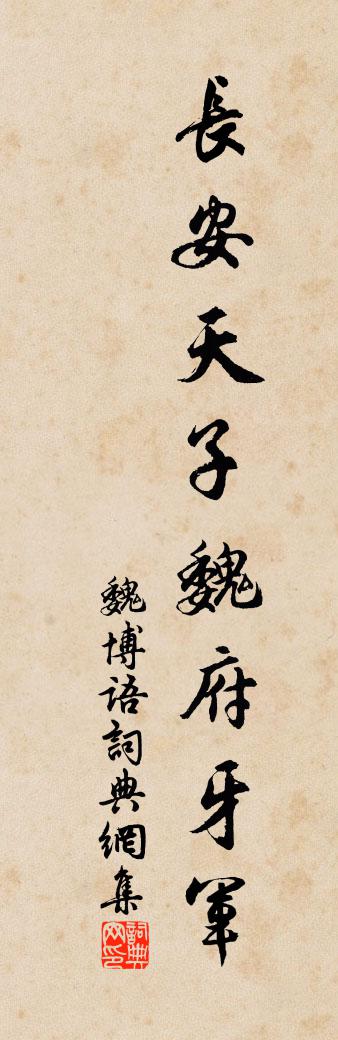 長安天子魏府牙軍
魏博语詞典網集
詞典网印